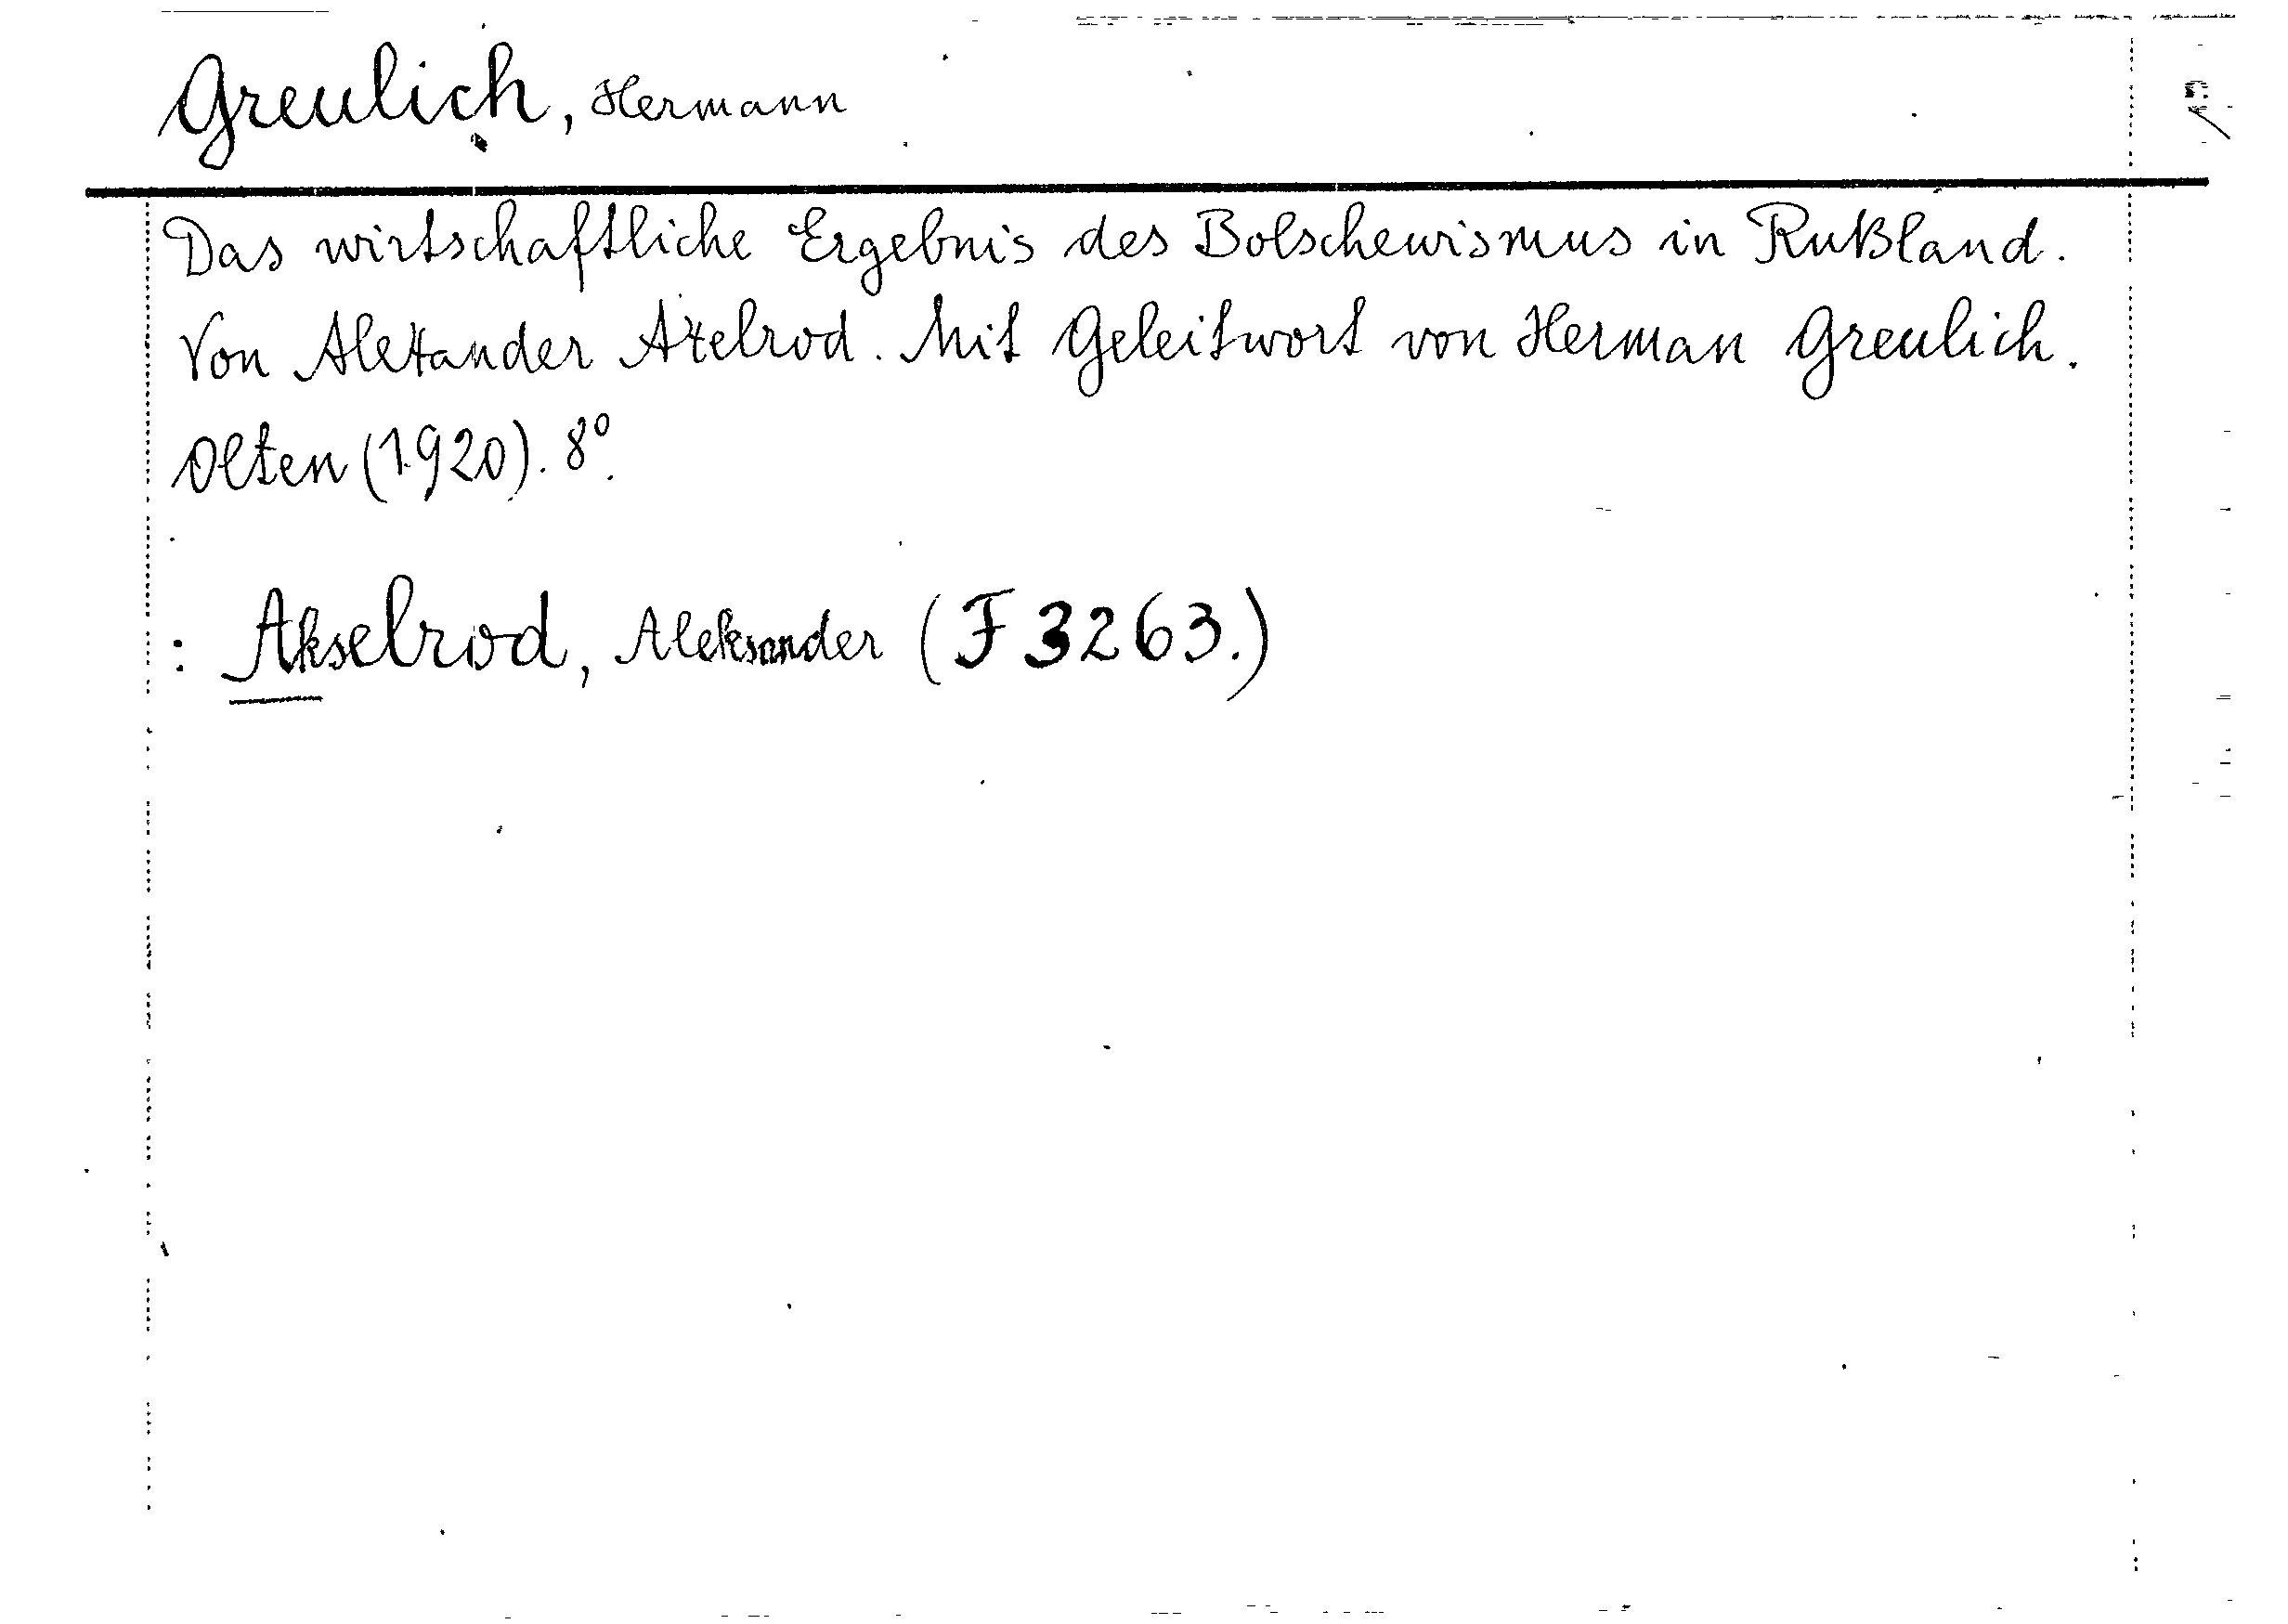 Greulich, Hermann
Das wirtschaftliche Ergebnis des Bolschewismus in Rußland.
Von Alexander Axelrod. Mit Geleitwort von Herman Greulich.
Olten (1920). 8°.
: Akselrod, Aleksander (F 3263.)